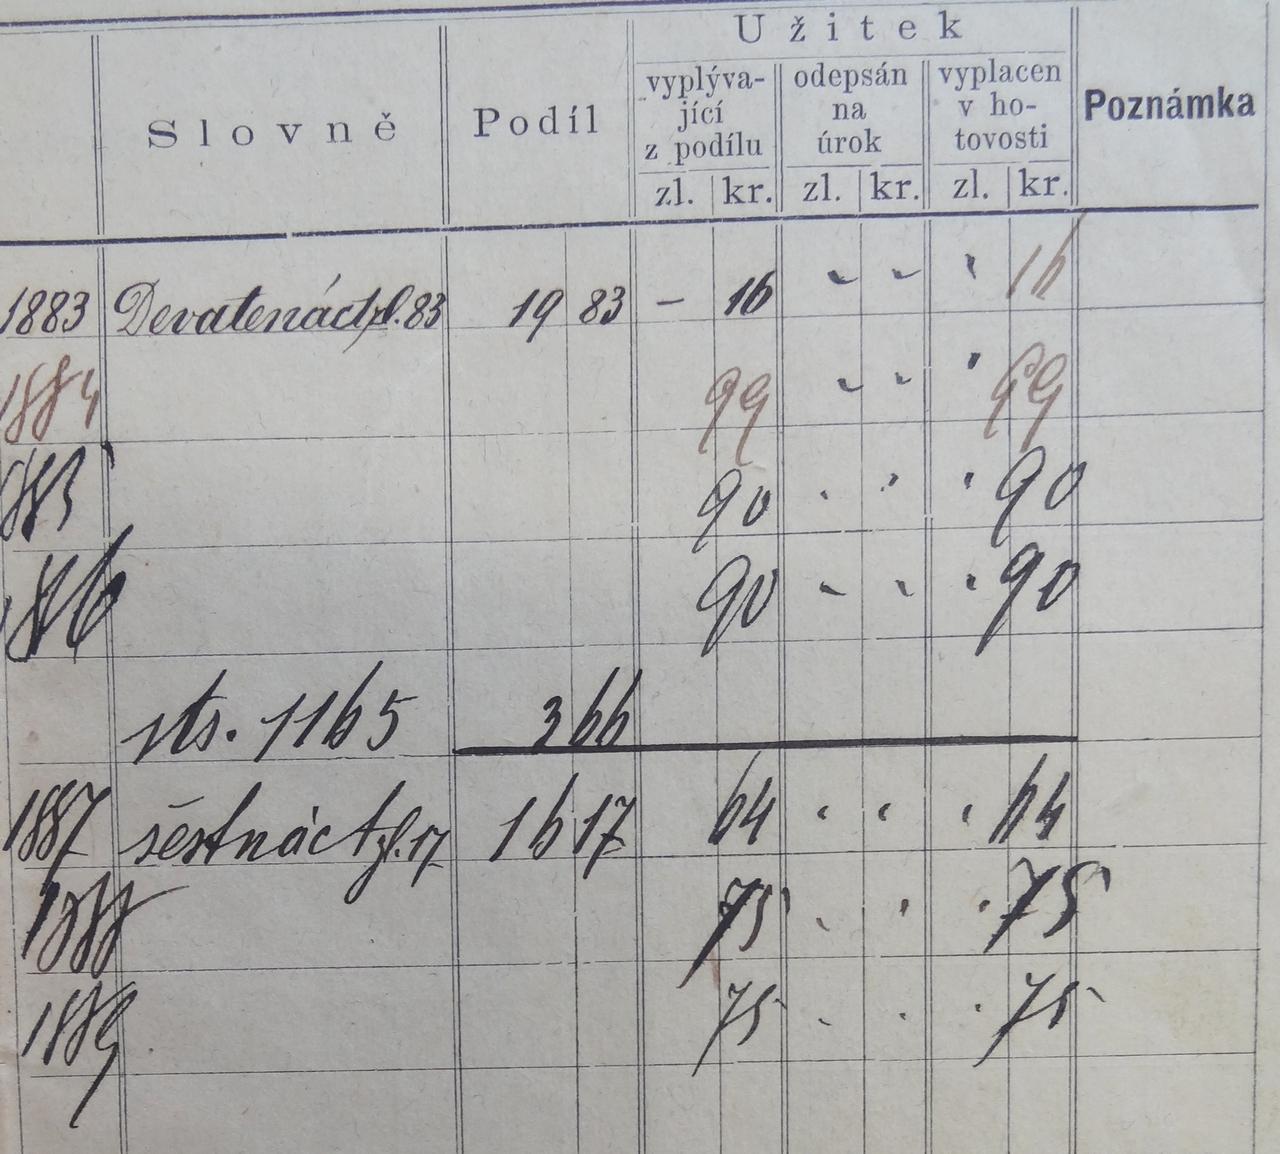 Užitek
Slovně Podíl vyplýva- odepsán vyplacen Poznámka
jící na v ho-
z podílu úrok tovosti
zl. kr. zl. kr. zl. kr.
1883 Devatenáct zl. 83 19 83 – 16 " " " 16
1884 99 " " " 99
885 90 " " " 90
1886 90 " " " 90
sts. 1165 3 66
1887 šestnáct zl. 17 16 17 64 " " " 64
1888 75 " " " 75
1889 75 " " " 75